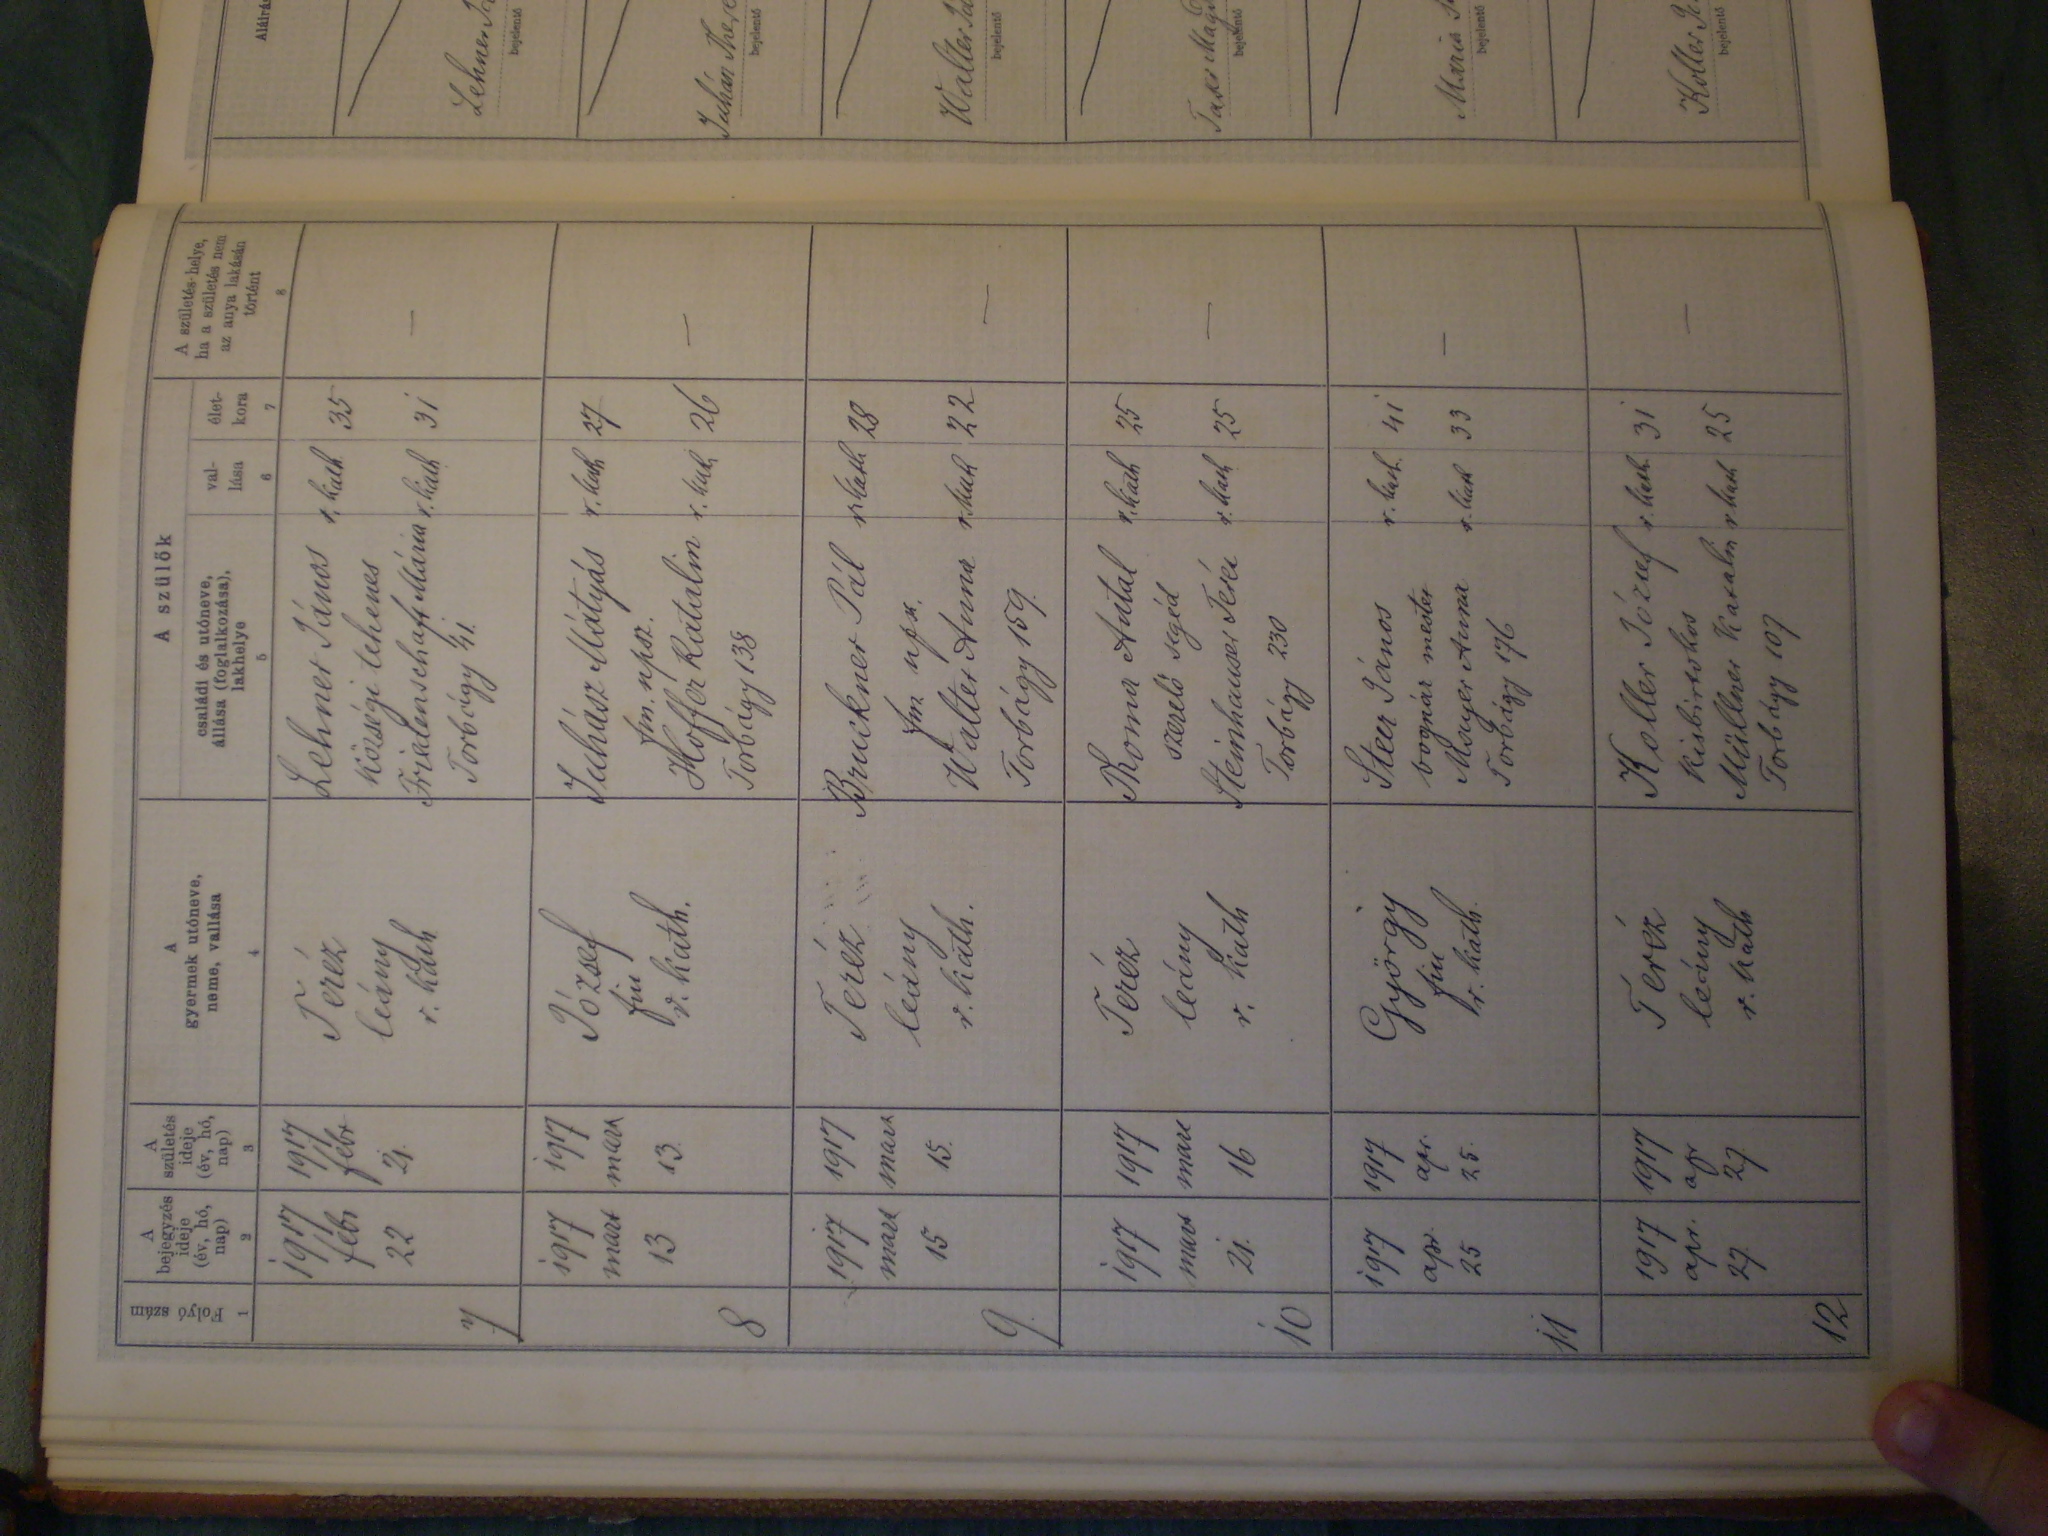 Folyó szám
A bejegyzés ideje (év, hó, nap)
A születés ideje (év, hó, nap)
A gyermek utóneve, neme, vallása
A szülők
családi és utóneve, állása (foglalkozása), lakhelye
val-lása
élet-kora
A születés helye, ha a születés nem az anya lakásán történt
1 2 3 4 5 6 7 8
7
1917 febr 22
1917 febr 21.
Teréz
leány
r. kath
Lehner János r. kath 35
községi tehenes
Frielenschaff Mária r. kath 31
Torbágy 41.
—
8
1917 mart 13
1917 mart 13.
József
fiu
r. kath.
Juhász Mátyás r. kath 27
fm. npsz.
Hoffer Katalin r. kath 26
Torbágy 138
—
9.
1917 mart 15
1917 mart 15.
Teréz
leány
r. kath.
Bruckner Pál r. kath 28
fm npsz.
Walter Anna r. kath 22
Torbágy 159.
—
10
1917 mart 21.
1917 mart 16
Teréz
leány
r. kath
Thoma Antal r. kath 25
szerelő segéd
Steinhauser Teréz r. kath 25
Torbágy 230
—
11
1917 apr. 25
1917 apr. 25.
György
fiu
r. kath.
Steer János r. kath. 41
bognár mester
Mayer Anna r. kath 33
Torbágy 176
—
12
1917 apr. 27
1917 apr 27
Teréz
leány
r. kath
Koller József r. kath. 31
kisbirtokos
Müllner Katalin r. kath 25
Torbágy 107
—
Aláírás
Lehner
bejelentő
Juhász
bejelentő
Walter
bejelentő
bejelentő
Mária
bejelentő
Koller
bejelentő